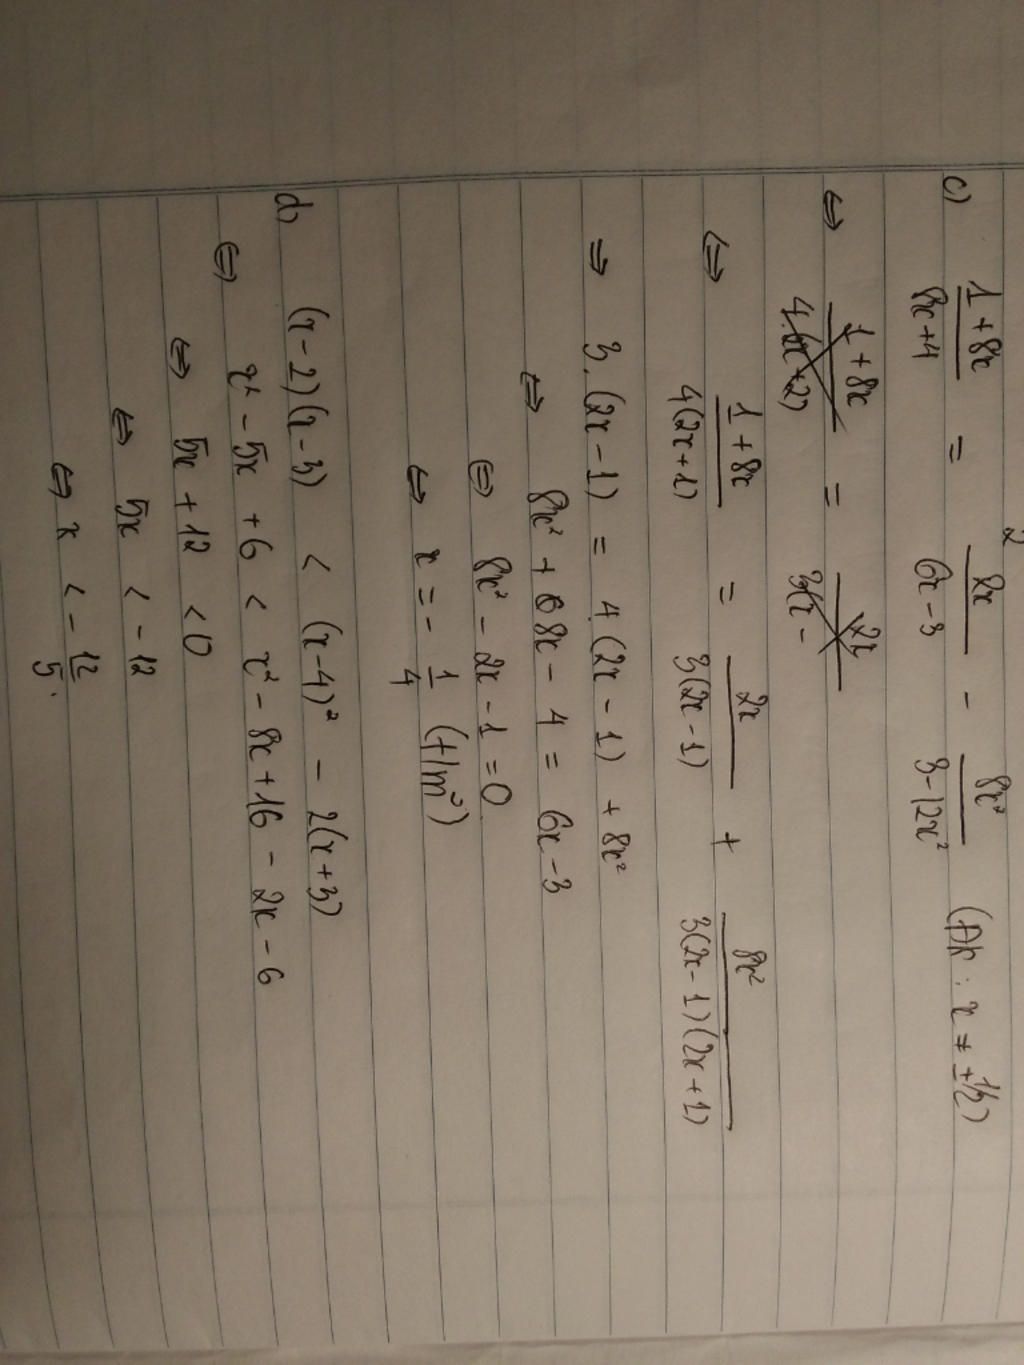 2
c) (1 + 8x)/(8x + 4) = 2x/(6x - 3) - 8x²/(3 - 12x²) (ĐK : x ≠ ± 1/2)
⇔ (1 + 8x)/(4.(x + 2)) = 2x/(3(x -
⇔ (1 + 8x)/(4(2x + 1)) = 2x/(3(2x - 1)) + 8x²/(3(2x - 1)(2x + 1))
⇒ 3.(2x - 1) = 4(2x - 1) + 8x²
⇔ 8x² + 8x - 4 = 6x - 3
⇔ 8x² - 2x - 1 = 0
⇔ x = - 1/4 (t/m²)
d) (x - 2)(x - 3) < (x - 4)² - 2(x + 3)
⇔ x² - 5x + 6 < x² - 8x + 16 - 2x - 6
⇔ 5x + 12 < 0
⇔ 5x < - 12
⇔ x < - 12/5.